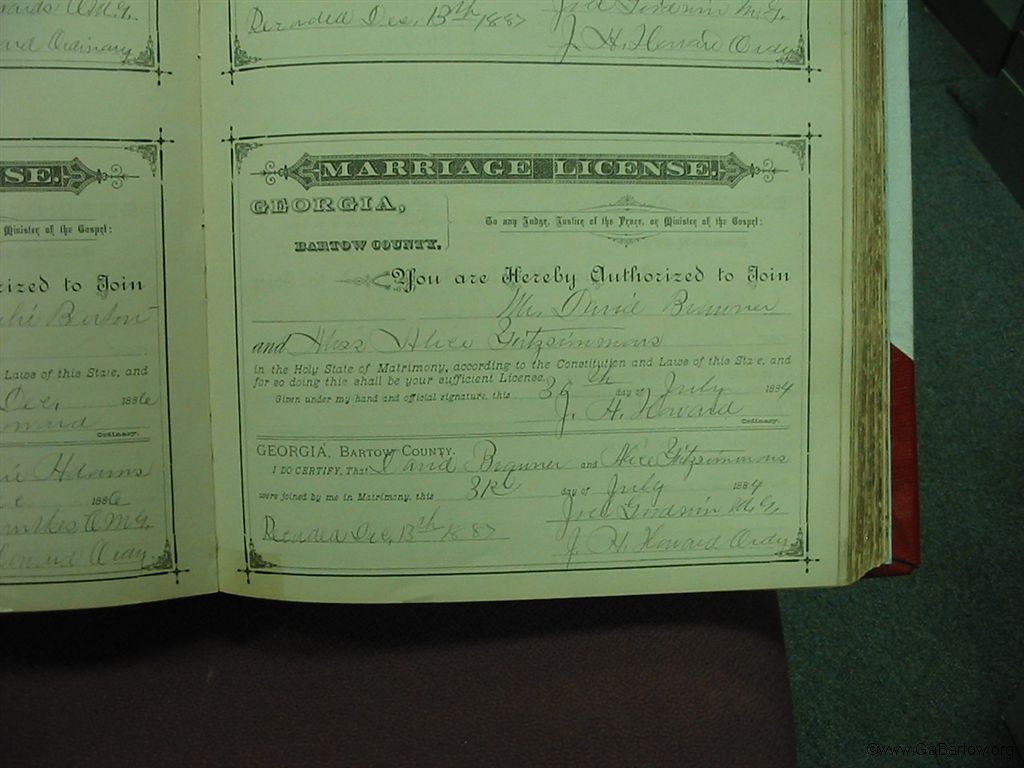 Ordinary
Recorded Dec. 13th 1887
M.G.
J. H. Howard Ordy
SE.
Minister of the Gospel:
rized to Join
Barton
Laws of this State, and
Dec, 1886
Ordinary.
Adams
1886
O.M.G.
Howard Ordy
MARRIAGE LICENSE.
GEORGIA,
BARTOW COUNTY.
To any Judge, Justice of the Peace, or Minister of the Gospel:
You are Hereby Authorized to Join
Mr. David Brawner
and Miss Alice Fitzsimmons
in the Holy State of Matrimony, according to the Constitution and Laws of this State, and
for so doing this shall be your sufficient License.
Given under my hand and official signature, this 30th day of July 1884
J. H. Howard Ordinary.
GEORGIA, BARTOW COUNTY.
I DO CERTIFY, That David Brawner and Alice Fitzsimmons
were joined by me in Matrimony, this day of July 1884
Joel M.G.
Recorded Dec, 13th 1887
J. H. Howard Ordy
©www.GaBartow.org